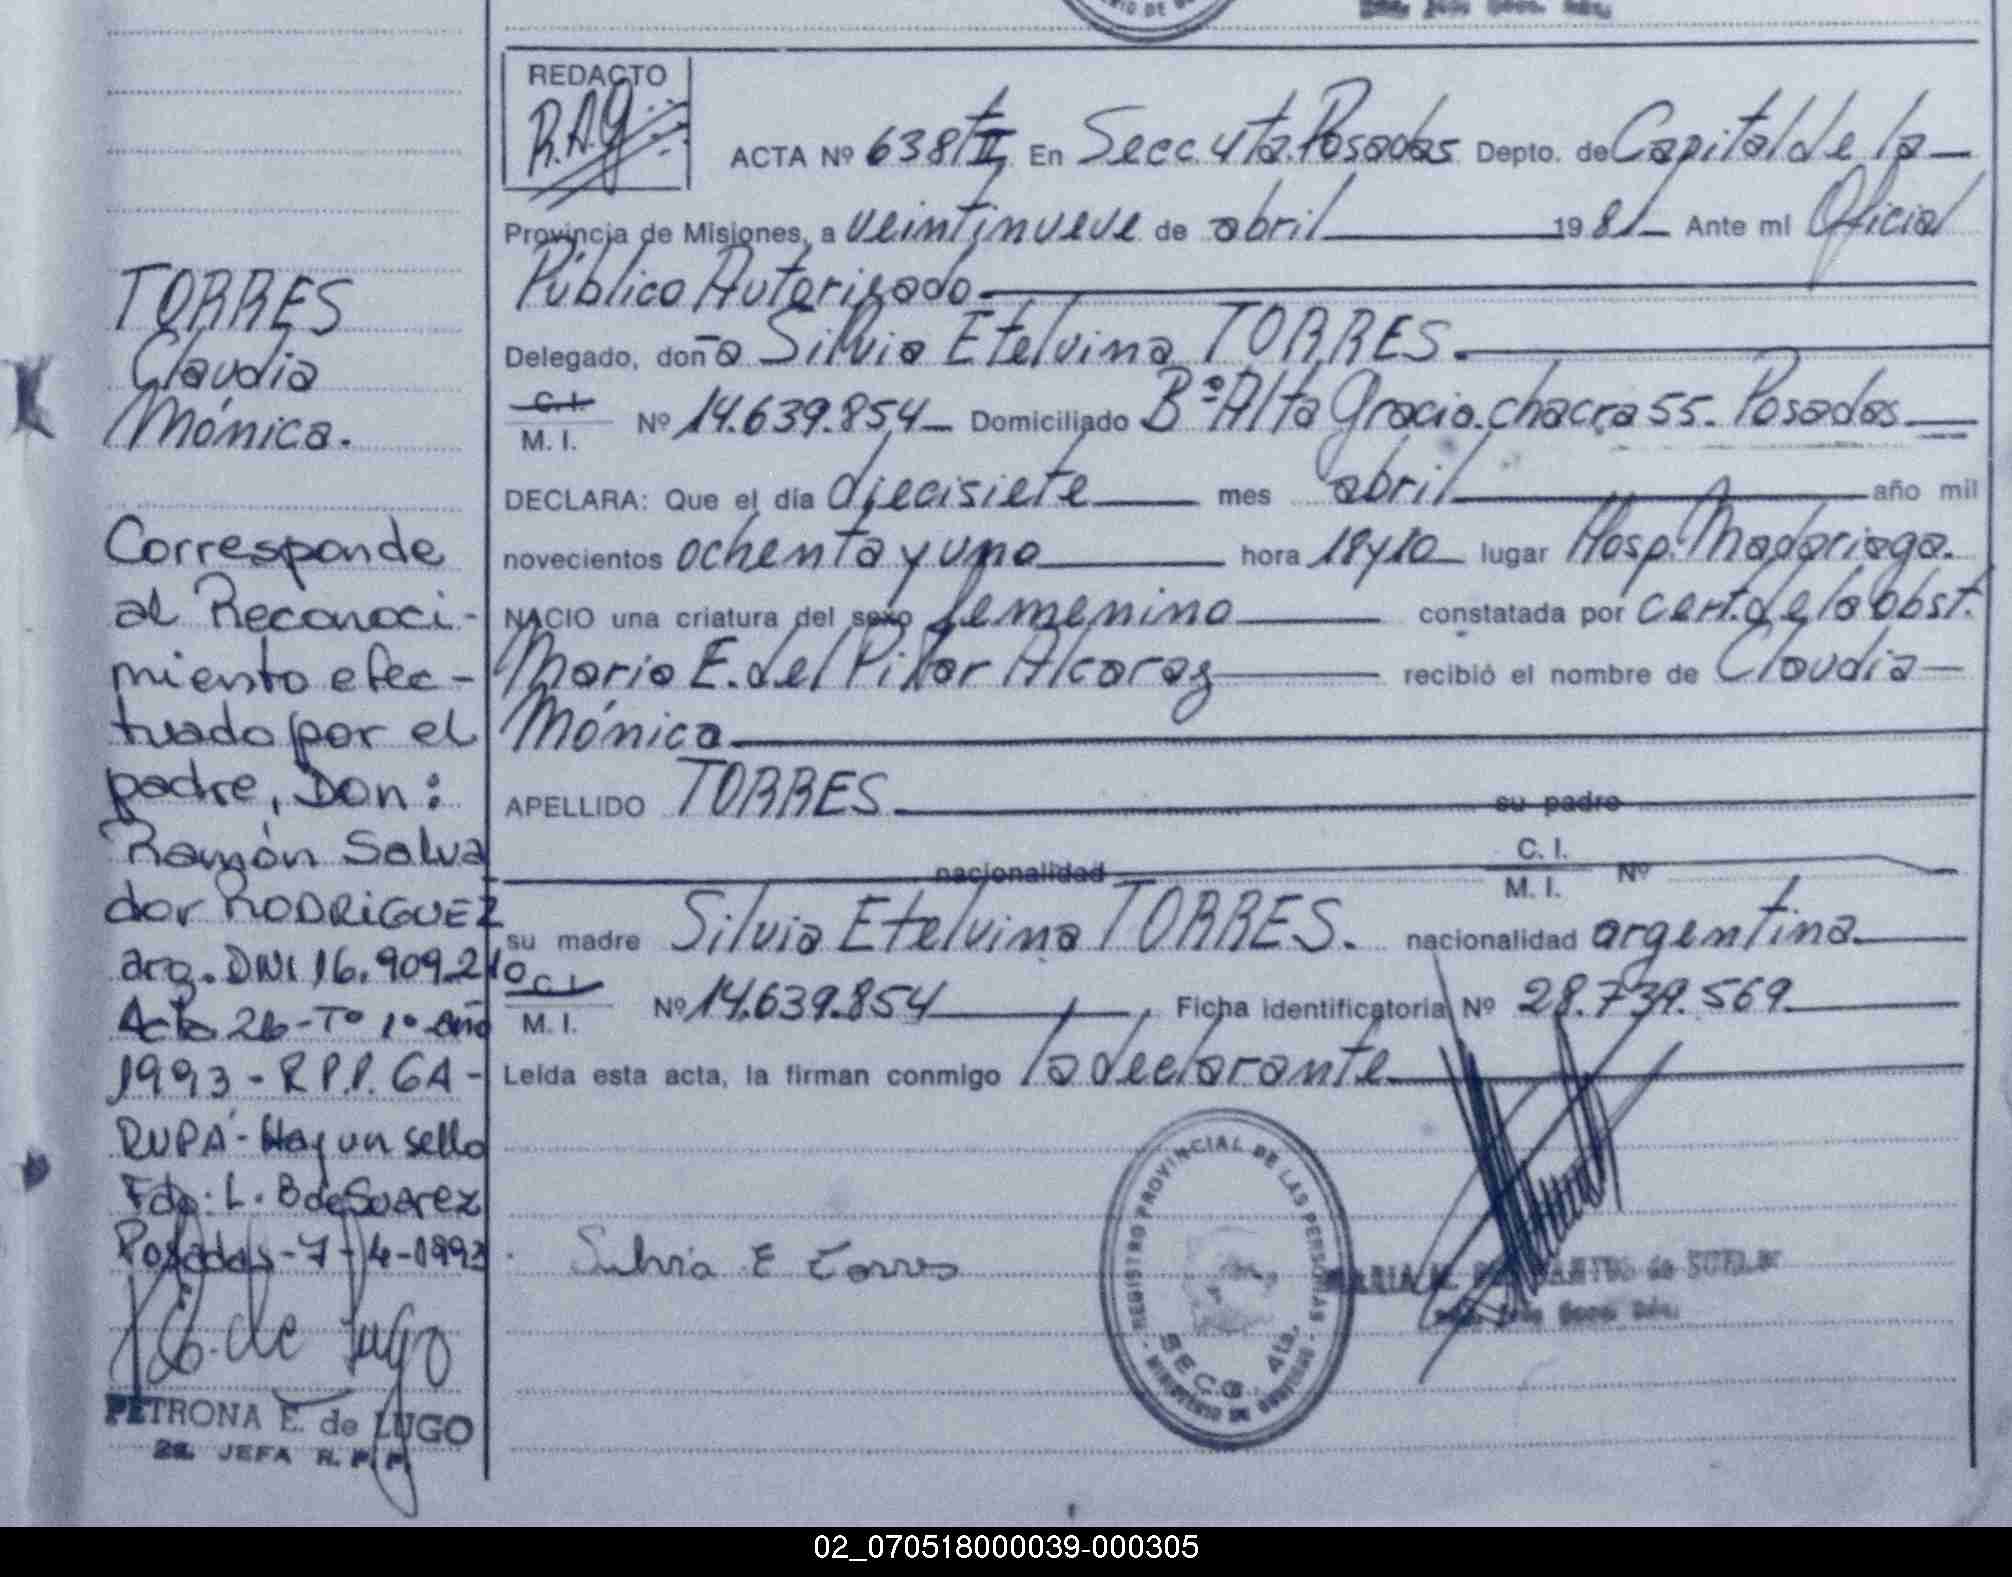 REDACTO
R.A.G
ACTA Nº 638 tº II En Secc. 4ta. Posadas Depto. de Capital de la
Provincia de Misiones, a veintinueve de abril 1981 Ante mí Oficial
Público Autorizado
Delegado, doña Silvia Etelvina TORRES.
C.I.
M. I. Nº 14.639.854 Domiciliado Bº Alta Gracia. chacra 55. Posadas
DECLARA: Que el día diecisiete mes abril año mil
novecientos ochenta y uno hora 18y10 lugar Hosp. Madariaga.
NACIO una criatura del sexo femenino constatada por cert. de la obst.
Maria E. del Pilar Alcaraz recibió el nombre de Claudia
Mónica
APELLIDO TORRES su padre
nacionalidad C. I.
M. I. Nº
su madre Silvia Etelvina TORRES. nacionalidad argentina
C.I.
M. I. Nº 14.639.854, Ficha identificatoria Nº 28.739.569
Leída esta acta, la firman conmigo la declarante
Silvia E Torres
REGISTRO PROVINCIAL DE LAS PERSONAS
SECC. 4ta.
MINISTERIO DE GOBIERNO
TORRES
Claudia
Mónica.
Corresponde
al Reconoci-
miento efec-
tuado por el
padre, Don:
Ramón Salva
dor RODRIGUEZ
arg. DNI 16.909.210
Acta 26-Tº 1º-año
1993-R.P.P. GA-
RUPÁ-Hay un sello
Fdo: L. B de Suarez
Posadas-7-4-1993
E. de Lugo
PETRONA E. de LUGO
2a. JEFA R. P. P.
02_070518000039-000305